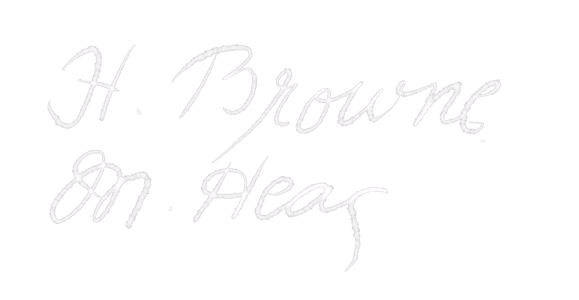 H. Browne
M. Heag